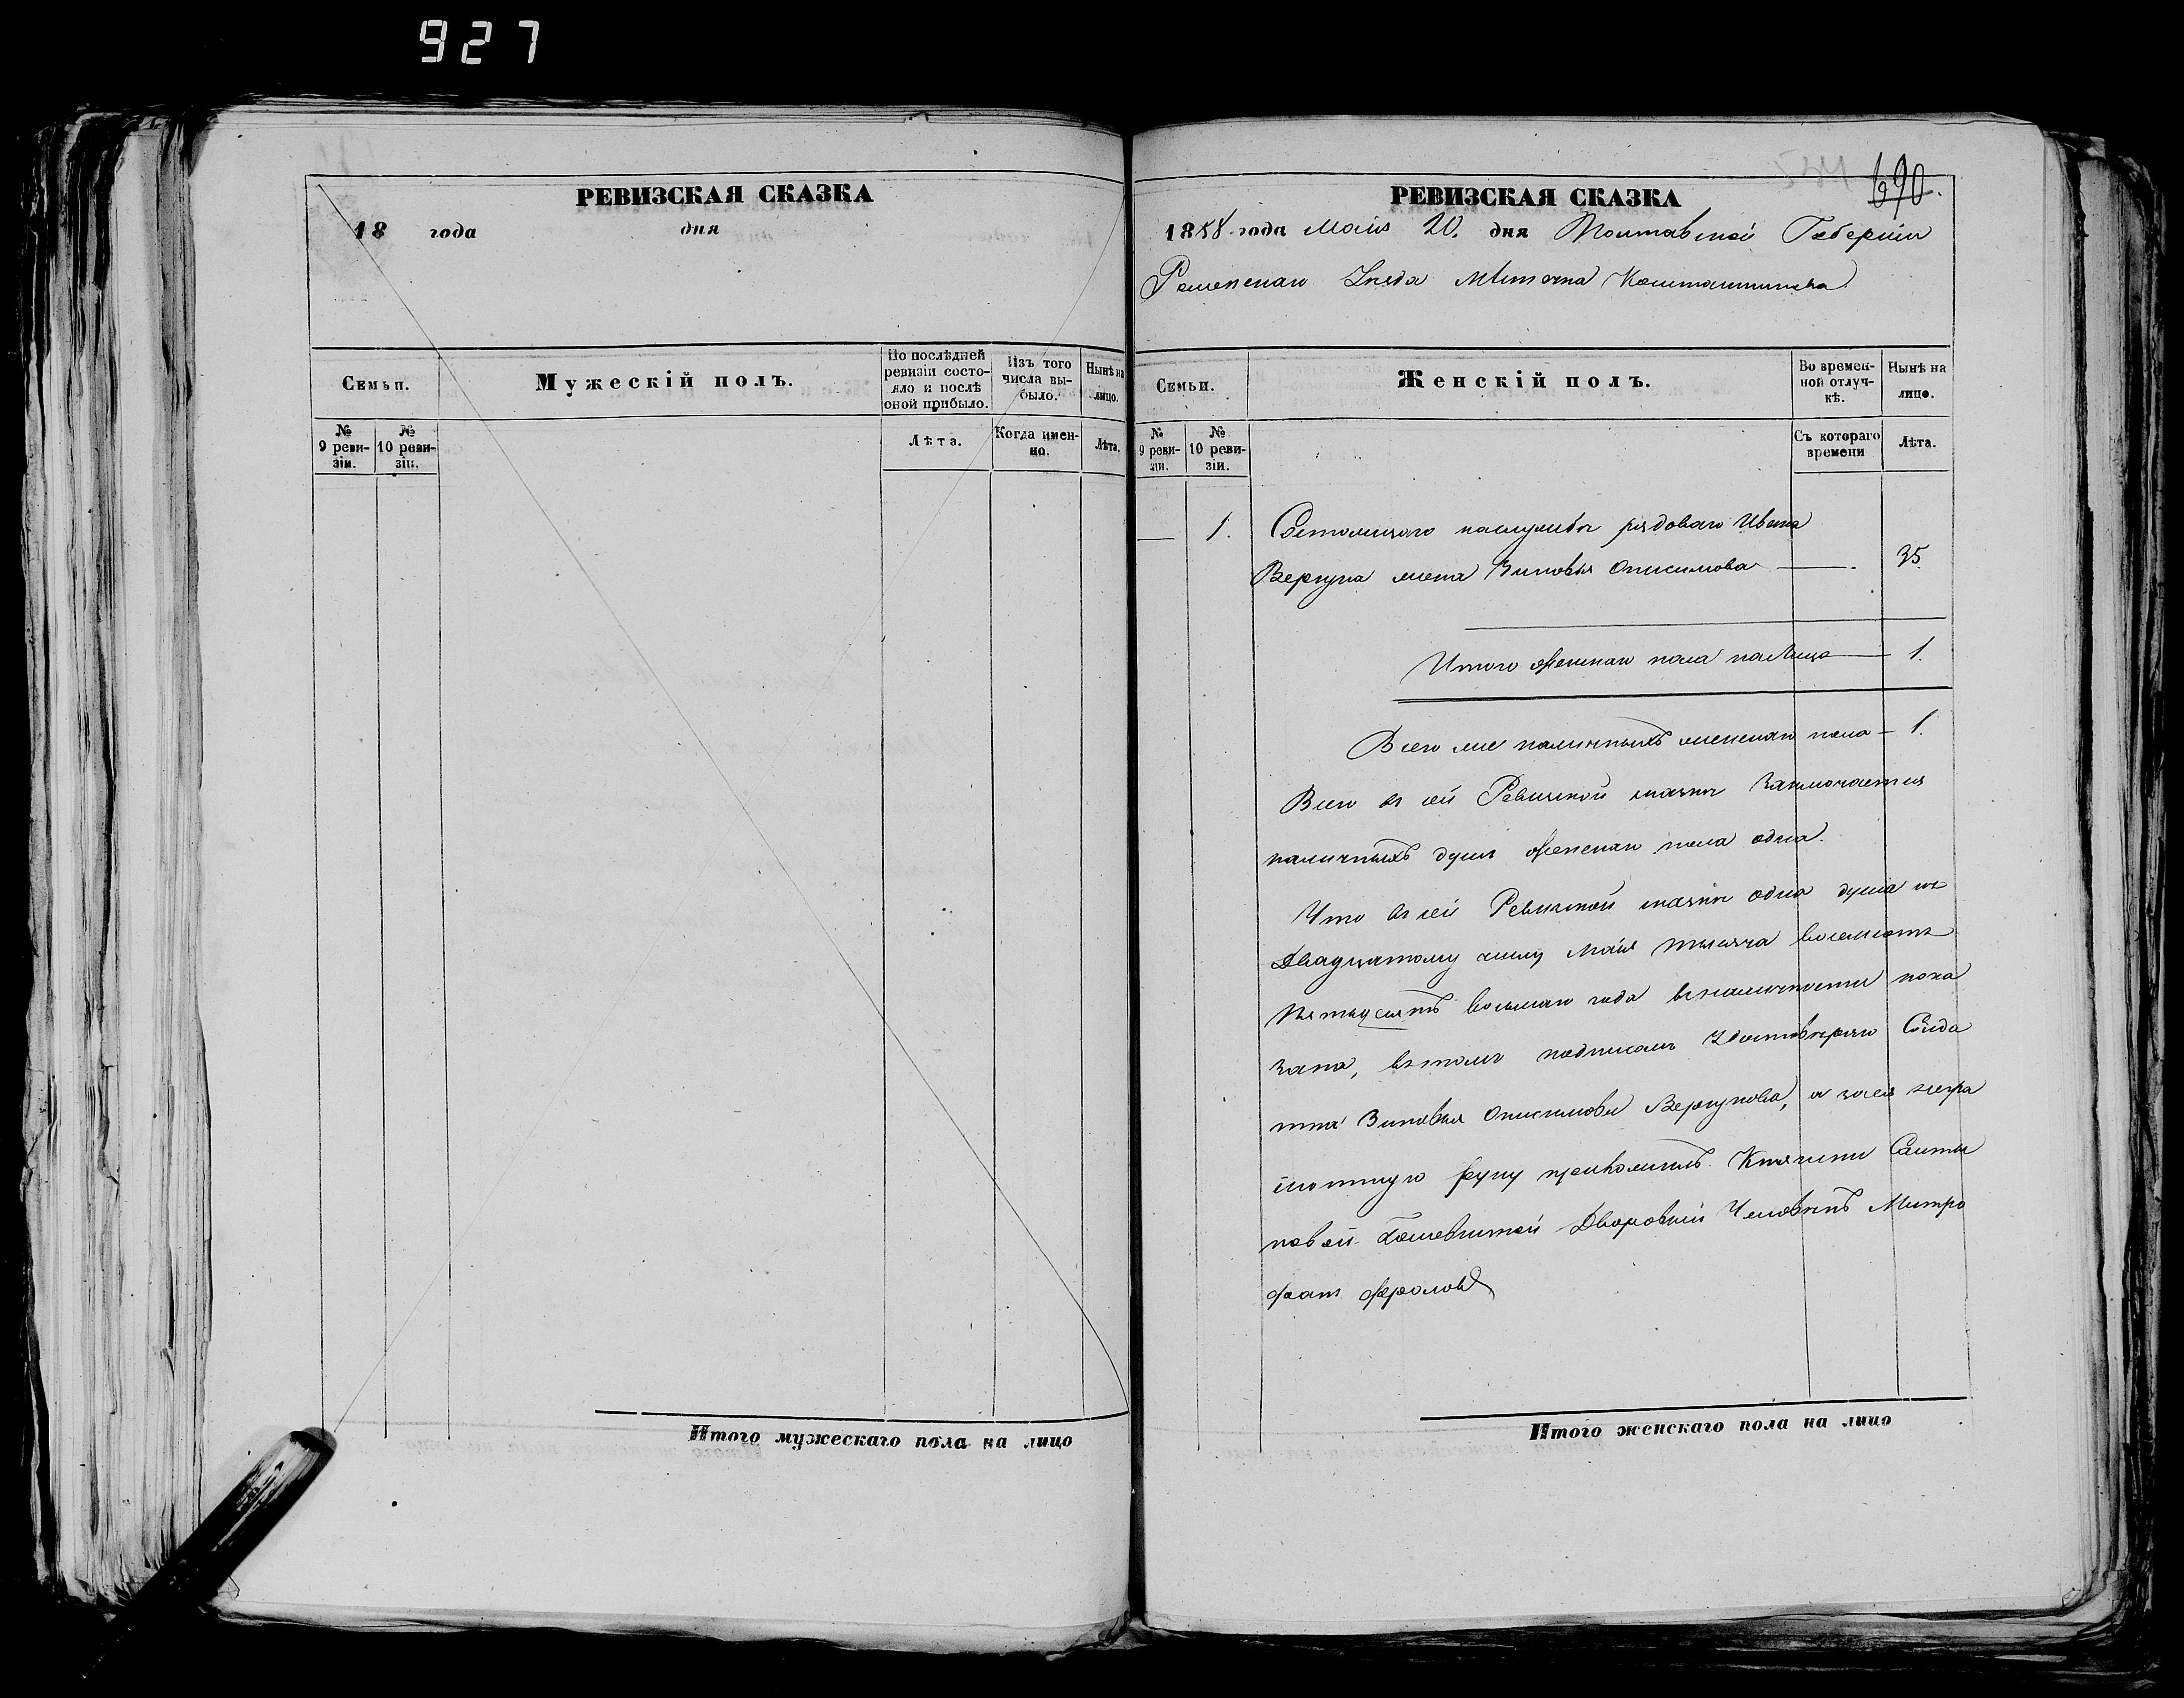 927
РЕВИЗСКАЯ СКАЗКА
18 года дня
Семьи.
Мужескій полъ.
По послѣдней ревизіи состояло и послѣ оной прибыло.
Изъ того числа выбыло.
Нынѣ на лицо.
№ 9 ревизіи.
№ 10 ревизіи.
Лѣта.
Когда именно.
Лѣта.
Итого мужескаго пола на лицо
544 690.
РЕВИЗСКАЯ СКАЗКА
1858 года Маія 20. дня Полтавской Губерніи
Роменскаго Уѣзда Мѣстечка Константинова
Семьи.
Женскій полъ.
Во временной отлучкѣ.
Нынѣ на лицо.
№ 9 ревизіи.
№ 10 ревизіи.
Съ котораго времени
Лѣта.
1. Состоящаго наслужбѣ рядоваго Ивана
Вергуна жена Зиновья Онисимова 35.
Итого женскаго пола налицо 1.
Всего же наличныхъ женскаго пола 1.
Всего въ сей Ревизской сказкѣ заключается
наличныхъ душъ женскаго пола одна.
Что въ сей Ревизской сказкѣ одна душа къ
Двадцатому числу Маія тысяча восемсотъ
Пятьдесятъ восьмаго года вналичности пока
зана, втомъ подписомъ Удостовѣряю Солда
тка Зиновья Онисимова Вергунова, а зася негра
мотную руку приложилъ Княгини
Дворовый Человѣкъ Митро
фан Фроловъ
Итого женскаго пола на лицо